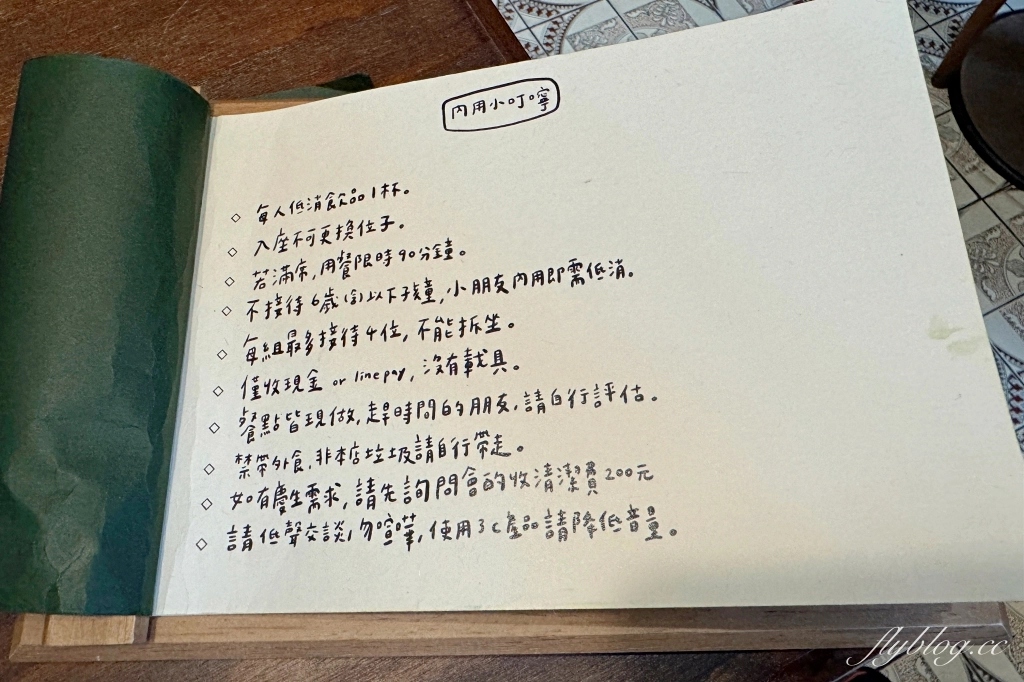 內用小叮嚀
◇ 每人低消飲品1杯。
◇ 入座不可更換位子。
◇ 若滿席,用餐限時90分鐘。
◇ 不接待6歲(含)以下孩童,小朋友內用即需低消。
◇ 每組最多接待4位,不能拆坐。
◇ 僅收現金 or line pay, 沒有載具。
◇ 餐點皆現做,趕時間的朋友,請自行評估。
◇ 禁帶外食,非本店垃圾請自行帶走。
◇ 如有慶生需求,請先詢問會酌收清潔費200元
◇ 請低聲交談,勿喧嘩,使用3C產品請降低音量。
flyblog.cc